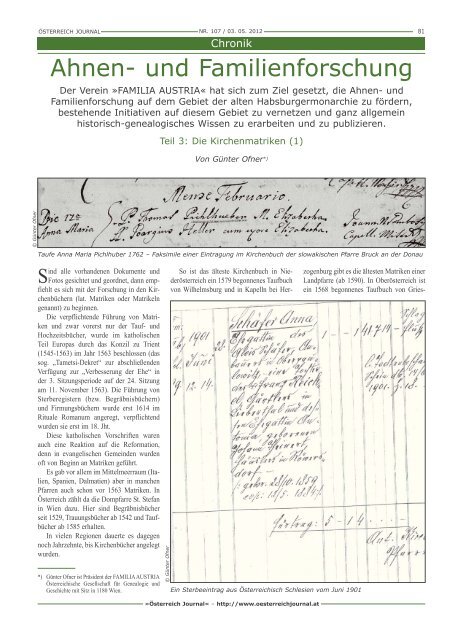 ÖSTERREICH JOURNAL
NR. 107 / 03. 05. 2012
81
Chronik
Ahnen- und Familienforschung
Der Verein »FAMILIA AUSTRIA« hat sich zum Ziel gesetzt, die Ahnen- und
Familienforschung auf dem Gebiet der alten Habsburgermonarchie zu fördern,
bestehende Initiativen auf diesem Gebiet zu vernetzen und ganz allgemein
historisch-genealogisches Wissen zu erarbeiten und zu publizieren.
Teil 3: Die Kirchenmatriken (1)
Von Günter Ofner*)
Mense Februario.
Die 12ª
Anna Maria
P. Thomas Pichlhueber M. Elizabetha.
Heller cum uxore Elizabetha.
© Günter Ofner
Taufe Anna Maria Pichlhuber 1762 – Faksimile einer Eintragung im Kirchenbuch der slowakischen Pfarre Bruck an der Donau
Sind alle vorhandenen Dokumente und
Fotos gesichtet und geordnet, dann emp-
fiehlt es sich mit der Forschung in den Kir-
chenbüchern (lat. Matriken oder Matrikeln
genannt) zu beginnen.
Die verpflichtende Führung von Matri-
ken und zwar vorerst nur der Tauf- und
Hochzeitsbücher, wurde im katholischen
Teil Europas durch das Konzil zu Trient
(1545-1563) im Jahr 1563 beschlossen (das
sog. „Tametsi-Dekret“ zur abschließenden
Verfügung zur „Verbesserung der Ehe“ in
der 3. Sitzungsperiode auf der 24. Sitzung
am 11. November 1563). Die Führung von
Sterberegistern (bzw. Begräbnisbüchern)
und Firmungsbüchern wurde erst 1614 im
Rituale Romanum angeregt, verpflichtend
wurden sie erst im 18. Jht.
Diese katholischen Vorschriften waren
auch eine Reaktion auf die Reformation,
denn in evangelischen Gemeinden wurden
oft von Beginn an Matriken geführt.
Es gab vor allem im Mittelmeerraum (Ita-
lien, Spanien, Dalmatien) aber in manchen
Pfarren auch schon vor 1563 Matriken. In
Österreich zählt da die Dompfarre St. Stefan
in Wien dazu. Hier sind Begräbnisbücher
seit 1529, Trauungsbücher ab 1542 und Tauf-
bücher ab 1585 erhalten.
In vielen Regionen dauerte es dagegen
noch Jahrzehnte, bis Kirchenbücher angelegt
wurden.
*) Günter Ofner ist Präsident der FAMILIA AUSTRIA
Österreichische Gesellschaft für Genealogie und
Geschichte mit Sitz in 1180 Wien.
So ist das älteste Kirchenbuch in Nie-
derösterreich ein 1579 begonnenes Taufbuch
von Wilhelmsburg und in Kapelln bei Her-
zogenburg gibt es die ältesten Matriken einer
Landpfarre (ab 1590). In Oberösterreich ist
ein 1568 begonnenes Taufbuch von Gries-
1901
Schäfer Anna
Juni
9. 12. 14.
1901.
5 - 14
© Günter Ofner
Ein Sterbeeintrag aus Österreichisch Schlesien vom Juni 1901
»Österreich Journal« – http://www.oesterreichjournal.at